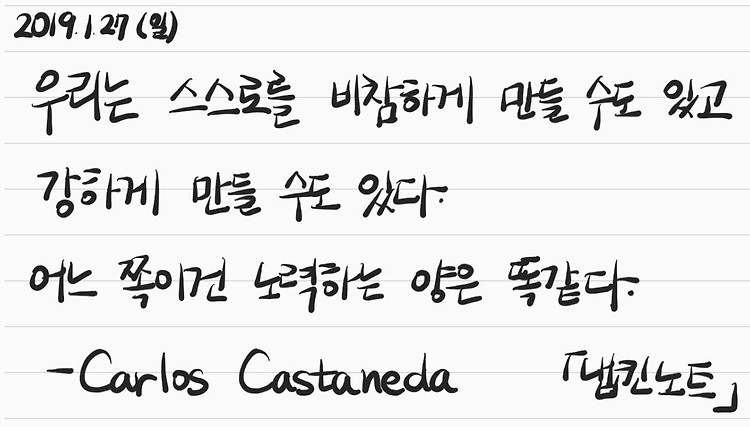 2019.1.27(일)
우리는 스스로를 비참하게 만들 수도 있고
강하게 만들 수도 있다.
어느 쪽이건 노력하는 양은 똑같다.
-Carlos Castaneda 「냅킨노트」